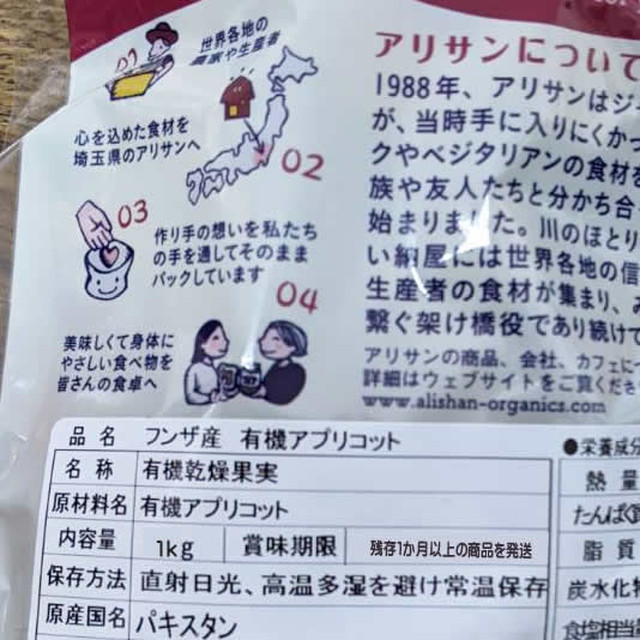 世界各地の
農家や生産者
心を込めた食材を
埼玉県のアリサンへ
02
03
作り手の想いを私たち
の手を通してそのまま
パックしています
04
美味しくて身体に
やさしい食べ物を
皆さんの食卓へ
アリサンについて
1988年、アリサンはジ
が、当時手に入りにくかっ
クやベジタリアンの食材を
族や友人たちと分かち合
始まりました。川のほとり
い納屋には世界各地の信
生産者の食材が集まり、
繋ぐ架け橋役であり続けて
アリサンの商品、会社、カフェにつ
詳細はウェブサイトをご覧くださ
www.alishan-organics.com
品名 フンザ産 有機アプリコット
名称 有機乾燥果実
原材料名 有機アプリコット
内容量 1kg 賞味期限 残存1か月以上の商品を発送
保存方法 直射日光、高温多湿を避け常温保存
原産国名 パキスタン
●栄養成分
熱量
たんぱく質
脂質
炭水化物
食塩相当